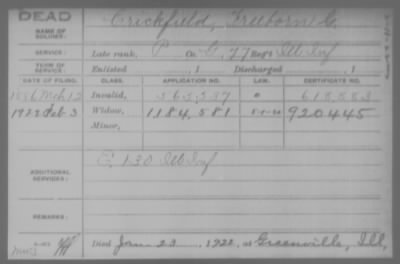 DEAD
NAME OF SOLDIER: Crickfield, Freeborn G.
SERVICE: Late rank, P Co. G, 77 Reg't Ill Inf
TERM OF SERVICE: Enlisted , 1 Discharged , 1
DATE OF FILING. CLASS. APPLICATION NO. LAW. CERTIFICATE NO.
1886 Mch 12 Invalid, 565,587 618,883
1922 Feb 3 Widow, 1184,581 920445
Minor,
ADDITIONAL SERVICES: E 130 Ill Inf
REMARKS:
Died Jan 23, 1922, at Greenville, Ill,